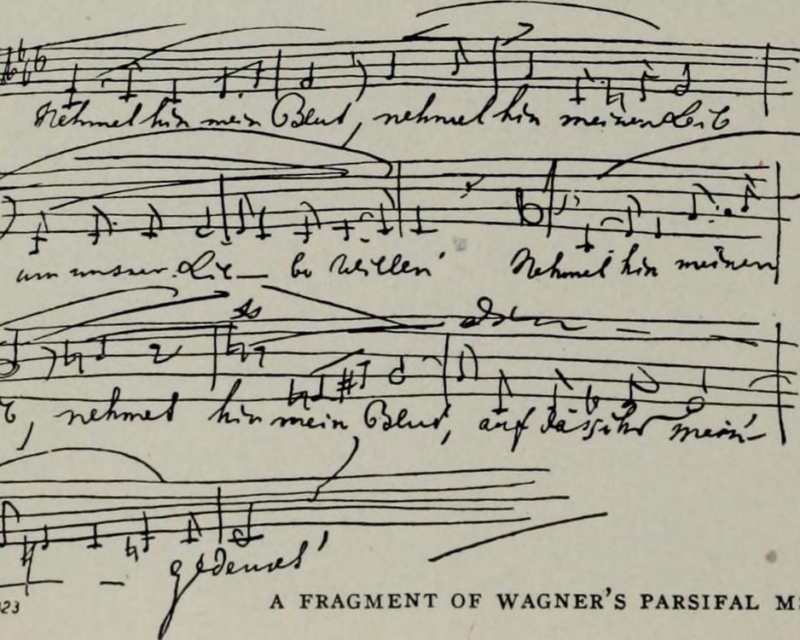 Nehmet hin mein Blut, nehmet hin meinen Leib
um unsrer Lie— be willen!
Nehmet hin meinen
b, nehmet hin mein Blut, auf dass ihr mein'
gedenket!
A FRAGMENT OF WAGNER'S PARSIFAL MS